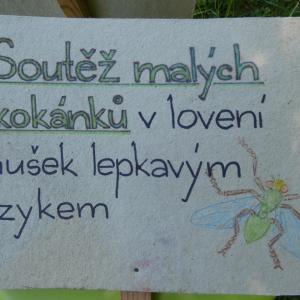 Soutěž malých
kokánků v lovení
mušek lepkavým
zykem